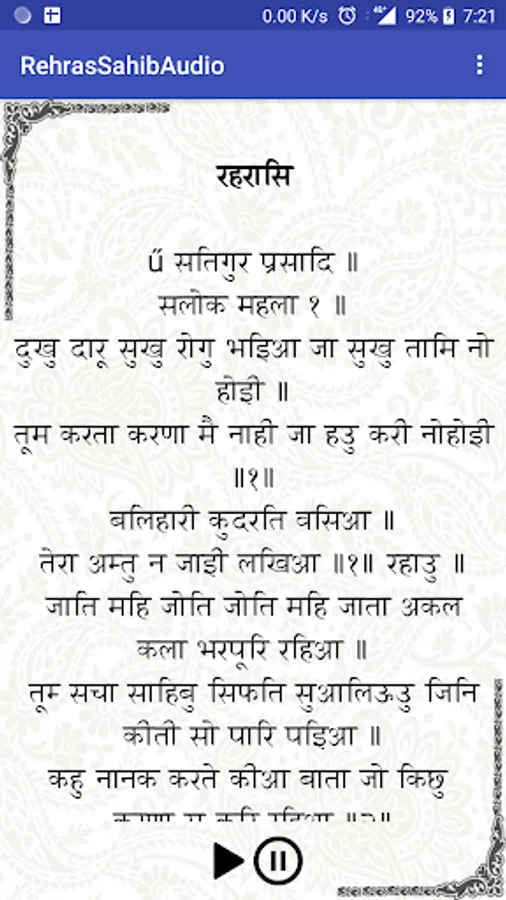 0.00 K/s 4G+ 92% 7:21
RehrasSahibAudio
रहरासि
ű सतिगुर प्रसादि ॥
सलोक महला १ ॥
दुखु दारू सुखु रोगु भइिआ जा सुखु तामि नो
होइी ॥
तूम करता करणा मै नाही जा हउ करी नोहोइी
॥१॥
बलिहारी कुदरति वसिआ ॥
तेरा अम्तु न जाइी लखिआ ॥१॥ रहाउ ॥
जाति महि जोति जोति महि जाता अकल
कला भरपूरि रहिआ ॥
तूम सचा साहिबु सिफति सुआलिऊउ जिनि
कीती सो पारि पइिआ ॥
कहु नानक करते कीआ बाता जो किछु